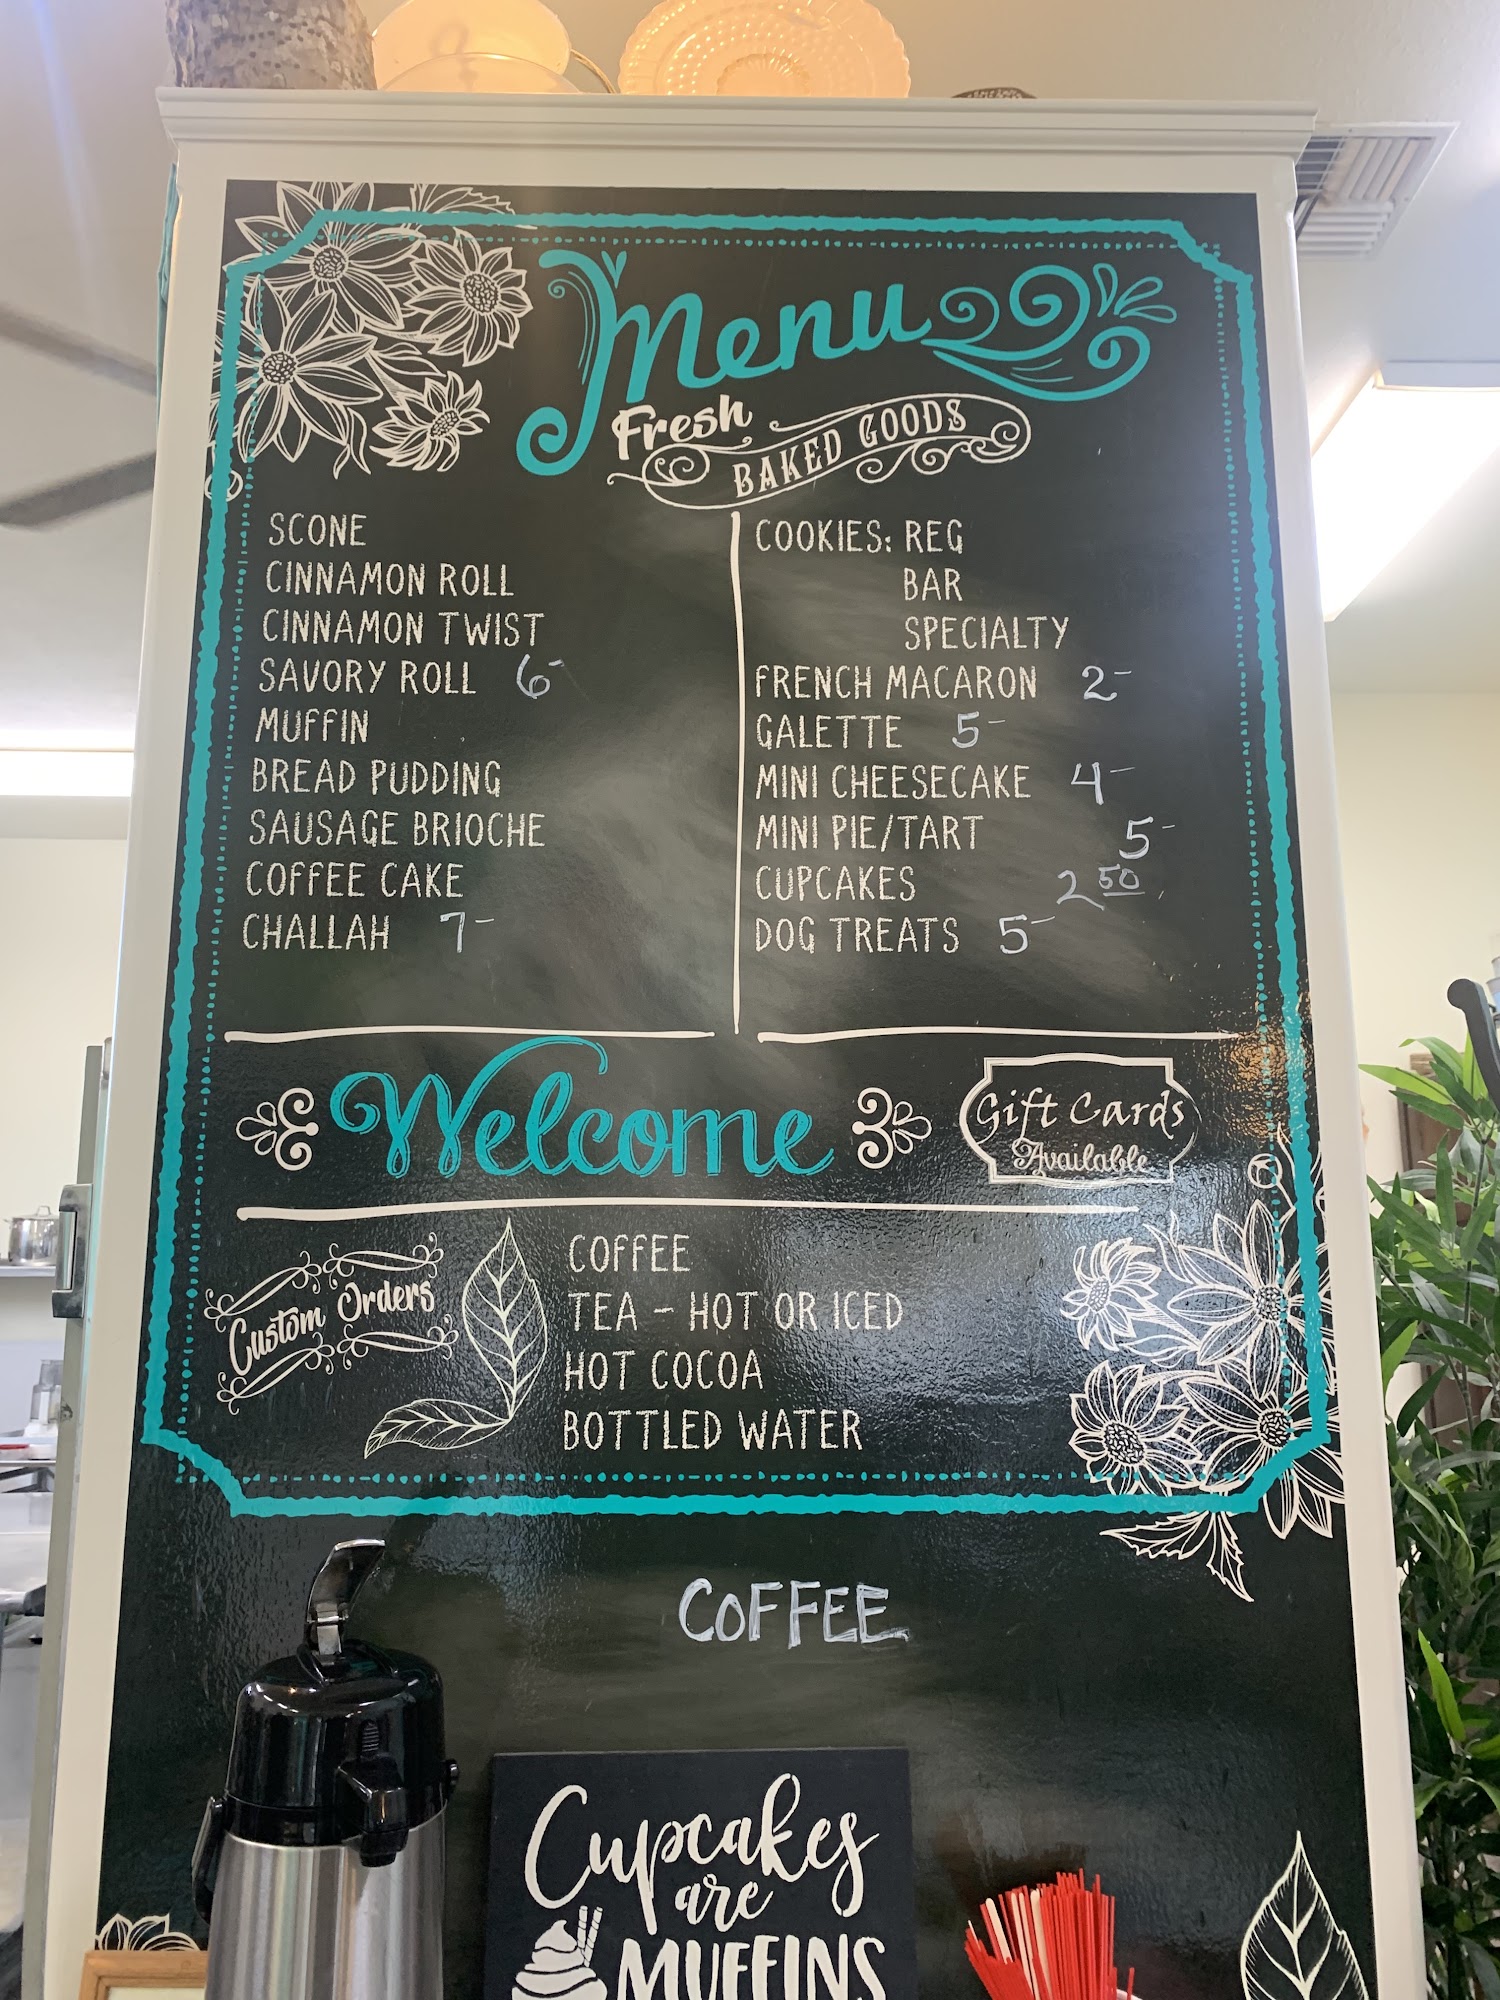 Menu
Fresh
BAKED GOODS
SCONE
CINNAMON ROLL
CINNAMON TWIST
SAVORY ROLL 6-
MUFFIN
BREAD PUDDING
SAUSAGE BRIOCHE
COFFEE CAKE
CHALLAH 7-
COOKIES: REG
BAR
SPECIALTY
FRENCH MACARON 2-
GALETTE 5-
MINI CHEESECAKE 4-
MINI PIE/TART 5-
CUPCAKES 2 50
DOG TREATS 5-
Welcome
Gift Cards
Available
Custom Orders
COFFEE
TEA - HOT OR ICED
HOT COCOA
BOTTLED WATER
COFFEE
Cupcakes
are
MUFFINS